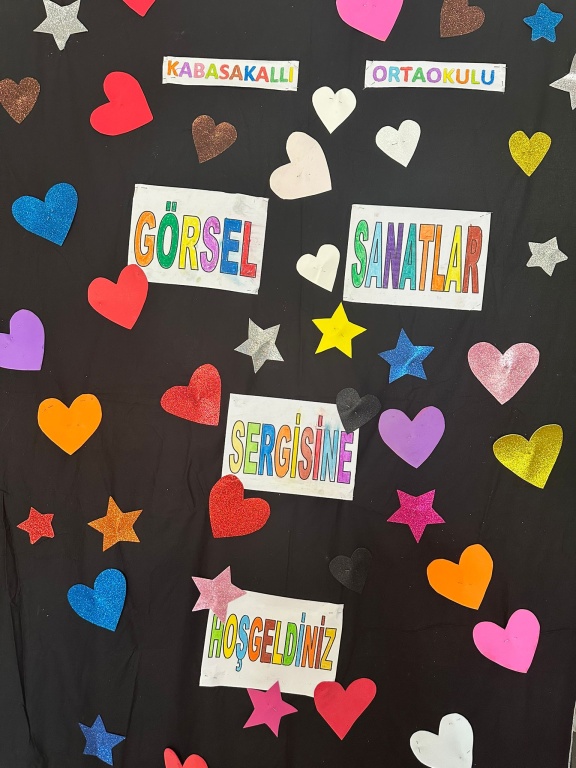 KABASAKALLI ORTAOKULU
GÖRSEL SANATLAR
SERGİSİNE
HOŞGELDİNİZ